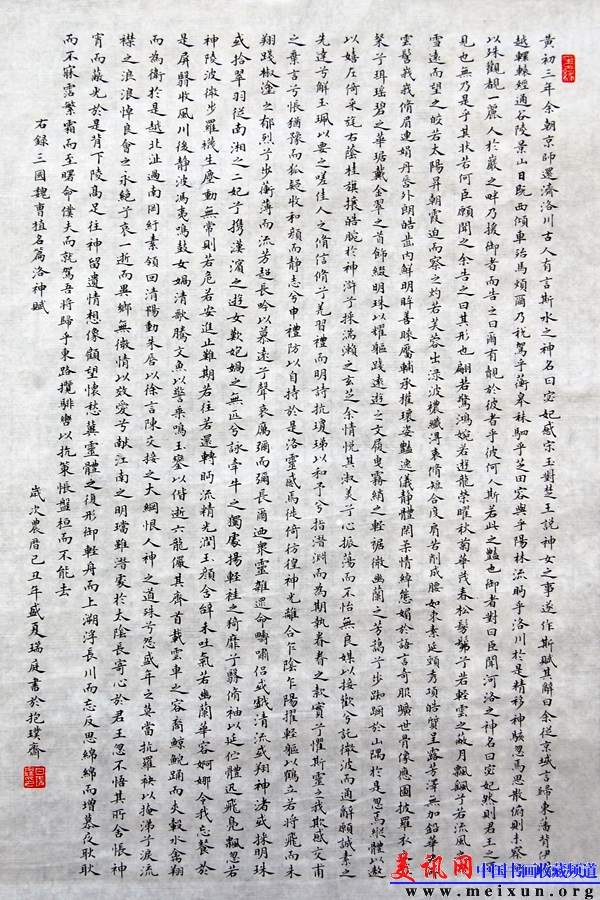 黃初三年余朝京師還濟洛川古人有言斯水之神名曰宓妃感宋玉對楚王說神女之事遂作斯賦其辭曰余從京域言歸東藩背伊
越轘轅經通谷陵景山日既西傾車殆馬煩爾乃稅駕乎蘅皋秣駟乎芝田容與乎陽林流眄乎洛川於是精移神駭忽焉思散俯則未察
以殊觀覩一麗人於巖之畔乃援御者而告之曰爾有覿於彼者乎彼何人斯若此之豔也御者對曰臣聞河洛之神名曰宓妃然則君王之
見也無乃是乎其狀若何臣願聞之余告之曰其形也翩若驚鴻婉若遊龍榮曜秋菊華茂春松髣髴兮若輕雲之蔽月飄飄兮若流風之
雪遠而望之皎若太陽昇朝霞迫而察之灼若芙蓉出淥波穠纖得衷脩短合度肩若削成腰如束素延頸秀項皓質呈露芳澤無加鉛華
雲髻峨峨脩眉連娟丹脣外朗皓齒內鮮明眸善睞靨輔承權瓌姿豔逸儀靜體閑柔情綽態媚於語言奇服曠世骨像應圖披羅衣
粲兮珥瑤碧之華琚戴金翠之首飾綴明珠以耀軀踐遠遊之文履曳霧綃之輕裾微幽蘭之芳藹兮步踟躕於山隅於是忽焉縱體以遨
以嬉左倚采旄右蔭桂旗攘皓腕於神滸兮採湍瀨之玄芝余情悅其淑美兮心振蕩而不怡無良媒以接歡兮託微波而通辭願誠素之
先達兮解玉珮以要之嗟佳人之信脩兮羌習禮而明詩抗瓊珶以和予兮指潛淵而為期執眷眷之款實兮懼斯靈之我欺感交甫
之棄言兮悵猶豫而狐疑收和顏而靜志兮申禮防以自持於是洛靈感焉徙倚彷徨神光離合乍陰乍陽擢輕軀以鶴立若將飛而未
翔踐椒塗之郁烈兮步蘅薄而流芳超長吟以慕遠兮聲哀厲而彌長爾迺衆靈雜遝命疇嘯侶或戲清流或翔神渚或採明珠
或拾翠羽從南湘之二妃兮攜漢濱之遊女歎匏媧之無匹兮詠牽牛之獨處揚輕袿之綺靡兮翳脩袖以延佇體迅飛鳧飄忽若
神陵波微步羅襪生塵動無常則若危若安進止難期若往若還轉眄流精光潤玉顏含辭未吐氣若幽蘭華容婀娜令我忘餐於
是屏翳收風川后靜波馮夷鳴鼓女媧清歌騰文魚以警乘鳴玉鑾以偕逝六龍儼其齊首載雲車之容裔鯨鯢踊而夾轂水禽翔
而為衛於是越北沚過南岡紆素領回清陽動朱脣以徐言陳交接之大綱恨人神之道殊兮怨盛年之莫當抗羅袂以掩涕兮淚流
襟之浪浪悼良會之永絕兮哀一逝而異鄉無微情以效愛兮獻江南之明璫雖潛處於太陰長寄心於君王忽不悟其所舍悵神
宵而蔽光於是背下陵高足往神留遺情想像顧望懷愁冀靈體之復形御輕舟而上溯浮長川而忘反思綿綿而增慕夜耿耿
而不寐霑繁霜而至曙命僕夫而就駕吾將歸乎東路攬騑轡以抗策悵盤桓而不能去
右錄三國魏曹植名篇洛神賦
歲次農曆己丑年盛夏瑞庭書於抱璞齋
美讯网 中国书画收藏频道
www.meixun.org